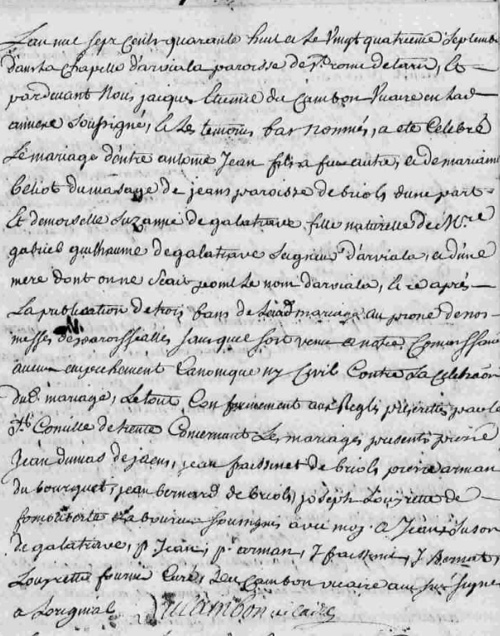 L'an mil sept cents quarante huit et le vingt quatrieme septemb
dans la chapelle d'arviala paroisse de st rome de tarn, Et
pardevant nous jaques Etienne du Cambon vicaire en lad
annexe soussigné, et les temoins bas nommés, a eté Celebré
Le mariage d'entre antoine Jean fils a feu autre, et de mariane
beliot du masage de jeans paroisse de briols d'une part
Et demoiselle suzanne de galatrave fille naturelle de Mre
gabriel guilhaume de galatrave seigneur d'arviala, et d'une
mere dont on ne scait point le nom d'arviala, et ce aprés
La publication de trois bans de leurd mariage au prone de nos
messes de paroissealles sans que soit venu a notre Connoissance
aucun empechement Canonique ny Civil Contre La Celebraõn
du d. mariage, Le tout Conformement aux Regles prescrittes par le
st Concille de trente Concernant Les mariages presents pierre
Jean dumas de jaens, jean fraissinet de briols pierre arman
du bourguet, jean bernard de briols joseph Louyrette de
soussignés avec moy a Jean suson
de galatrave, p. Jean, p. arman, J fraissinet, J Bernat,
Louyrette Curé, du Cambon vicaire aussi signé
a Du Cambon vicaire